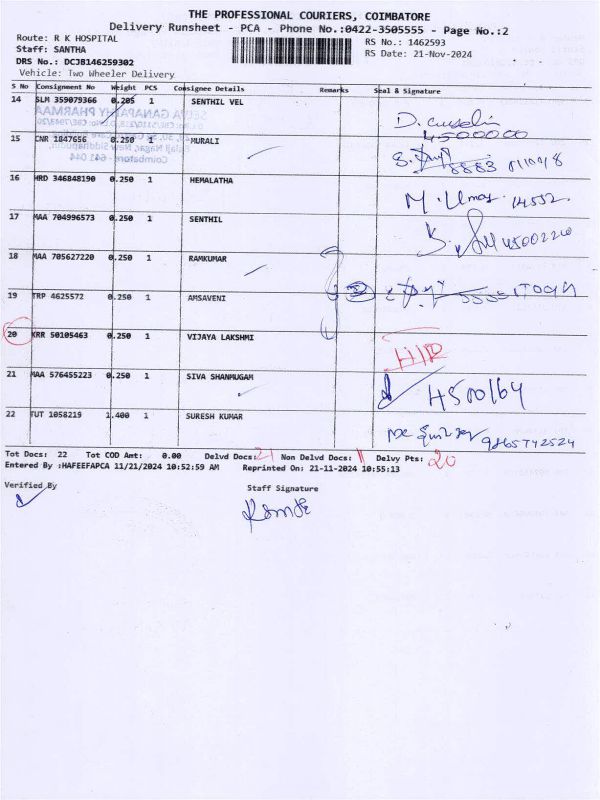 THE PROFESSIONAL COURIERS, COIMBATORE
Delivery Runsheet - PCA - Phone No.:0422-3505555 - Page No.:2
Route: R K HOSPITAL
RS No.: 1462593
Staff: SANTHA
RS Date: 21-Nov-2024
DRS No.: DCJB146259302
Vehicle: Two Wheeler Delivery
S No Consignment No Weight PCS Consignee Details Remarks Seal & Signature
14 SLM 359079366 0.205 1 SENTHIL VEL
4500000
15 CNR 1847656 0.250 1 MURALI
16 HRD 346848190 0.250 1 HEMALATHA
17 MAA 704996573 0.250 1 SENTHIL
18 MAA 705627220 0.250 1 RAMKUMAR
19 TRP 4625572 0.250 1 AMSAVENI
20 KRR 50105463 0.250 1 VIJAYA LAKSHMI
21 MAA 576455223 0.250 1 SIVA SHANMUGAM 4500164
22 TUT 1058219 1.400 1 SURESH KUMAR 9865742524
Tot Docs: 22 Tot COD Amt: 0.00 Delvd Docs: 21 Non Delvd Docs: 1 Delvy Pts: 20
Entered By :HAFEEFAPCA 11/21/2024 10:52:59 AM Reprinted On: 21-11-2024 10:55:13
Verified By
Staff Signature